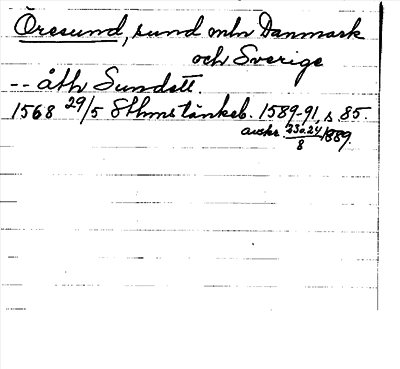 Öresund, sund mln Danmark
och Sverige
-- åth Sundett.
1568 29/5 Sthms tänkeb. 1589-91, s. 85.
avskr. 23 o. 24/8 1889.